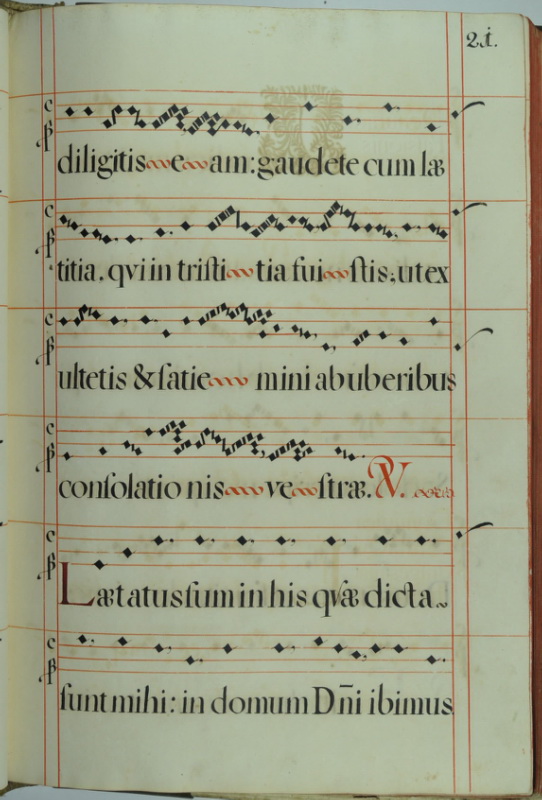 21.
diligitis e am: gaudete cum læ
titia. qvi in triſti tia fui ſtis: ut ex
ultetis & ſatie mini ab uberibus
conſolatio nis ve ſtræ. V.
Lætatus ſum in his qvæ dicta
ſunt mihi: in domum Dñi ibimus